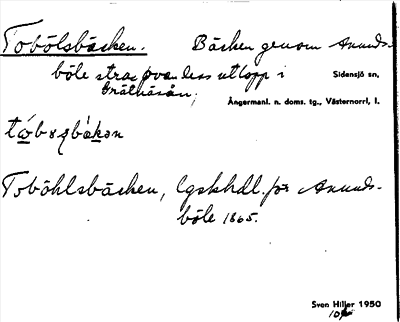 Tobölsbäcken. Bäcken genom Anunds-
böle strax ovan dess utlopp i Sidensjö sn,
Nätraån. Ångermanl. n. doms. tg., Västernorrl, l.
Toböhlsbäcken, Lgskhdl. för Anunds-
böle 1865.
Sven Hiller 1950